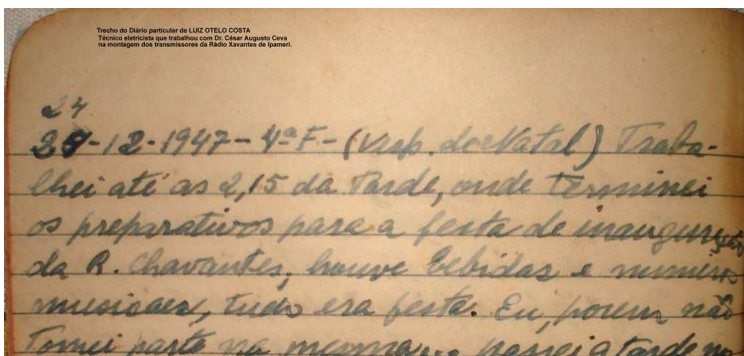 Trecho do Diário particular de LUIZ OTELO COSTA
Técnico eletricista que trabalhou com Dr. César Augusto Ceva
na montagem dos transmissores da Rádio Xavantes de Ipameri.
24
25-12-1947-4ªF-(Vesp. de Natal) Traba-
lhei até as 2,15 da tarde, onde terminei
os preparativos para a festa de inauguração
da R. Chavantes, houve bebidas e numeros
musicaes, tudo era festa. Eu, porem não
tomei parte na mesma passei a tarde